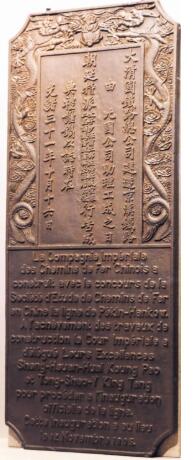 大清國鐵路總公司建造京漢鐵路
由 比國公司助理工成之日
朝廷
光緒三十一年十月十六日
La Compagnie Impériale
des Chemins de Fer Chinois a
construit avec le concours de la
Société d'Etude de Chemins de Fer
en Chine la ligne de Pékin-Hankow.
A l'achèvement des travaux de
construction la Cour Impériale a
délégué Leurs Excellences
Sheng-Hsuan-Huai Koung Pao
et Tang-Shao-Y King Tang
pour procéder à l'inauguration
officielle de la ligne.
Cette inauguration a eu lieu
le 12 Novembre 1905.